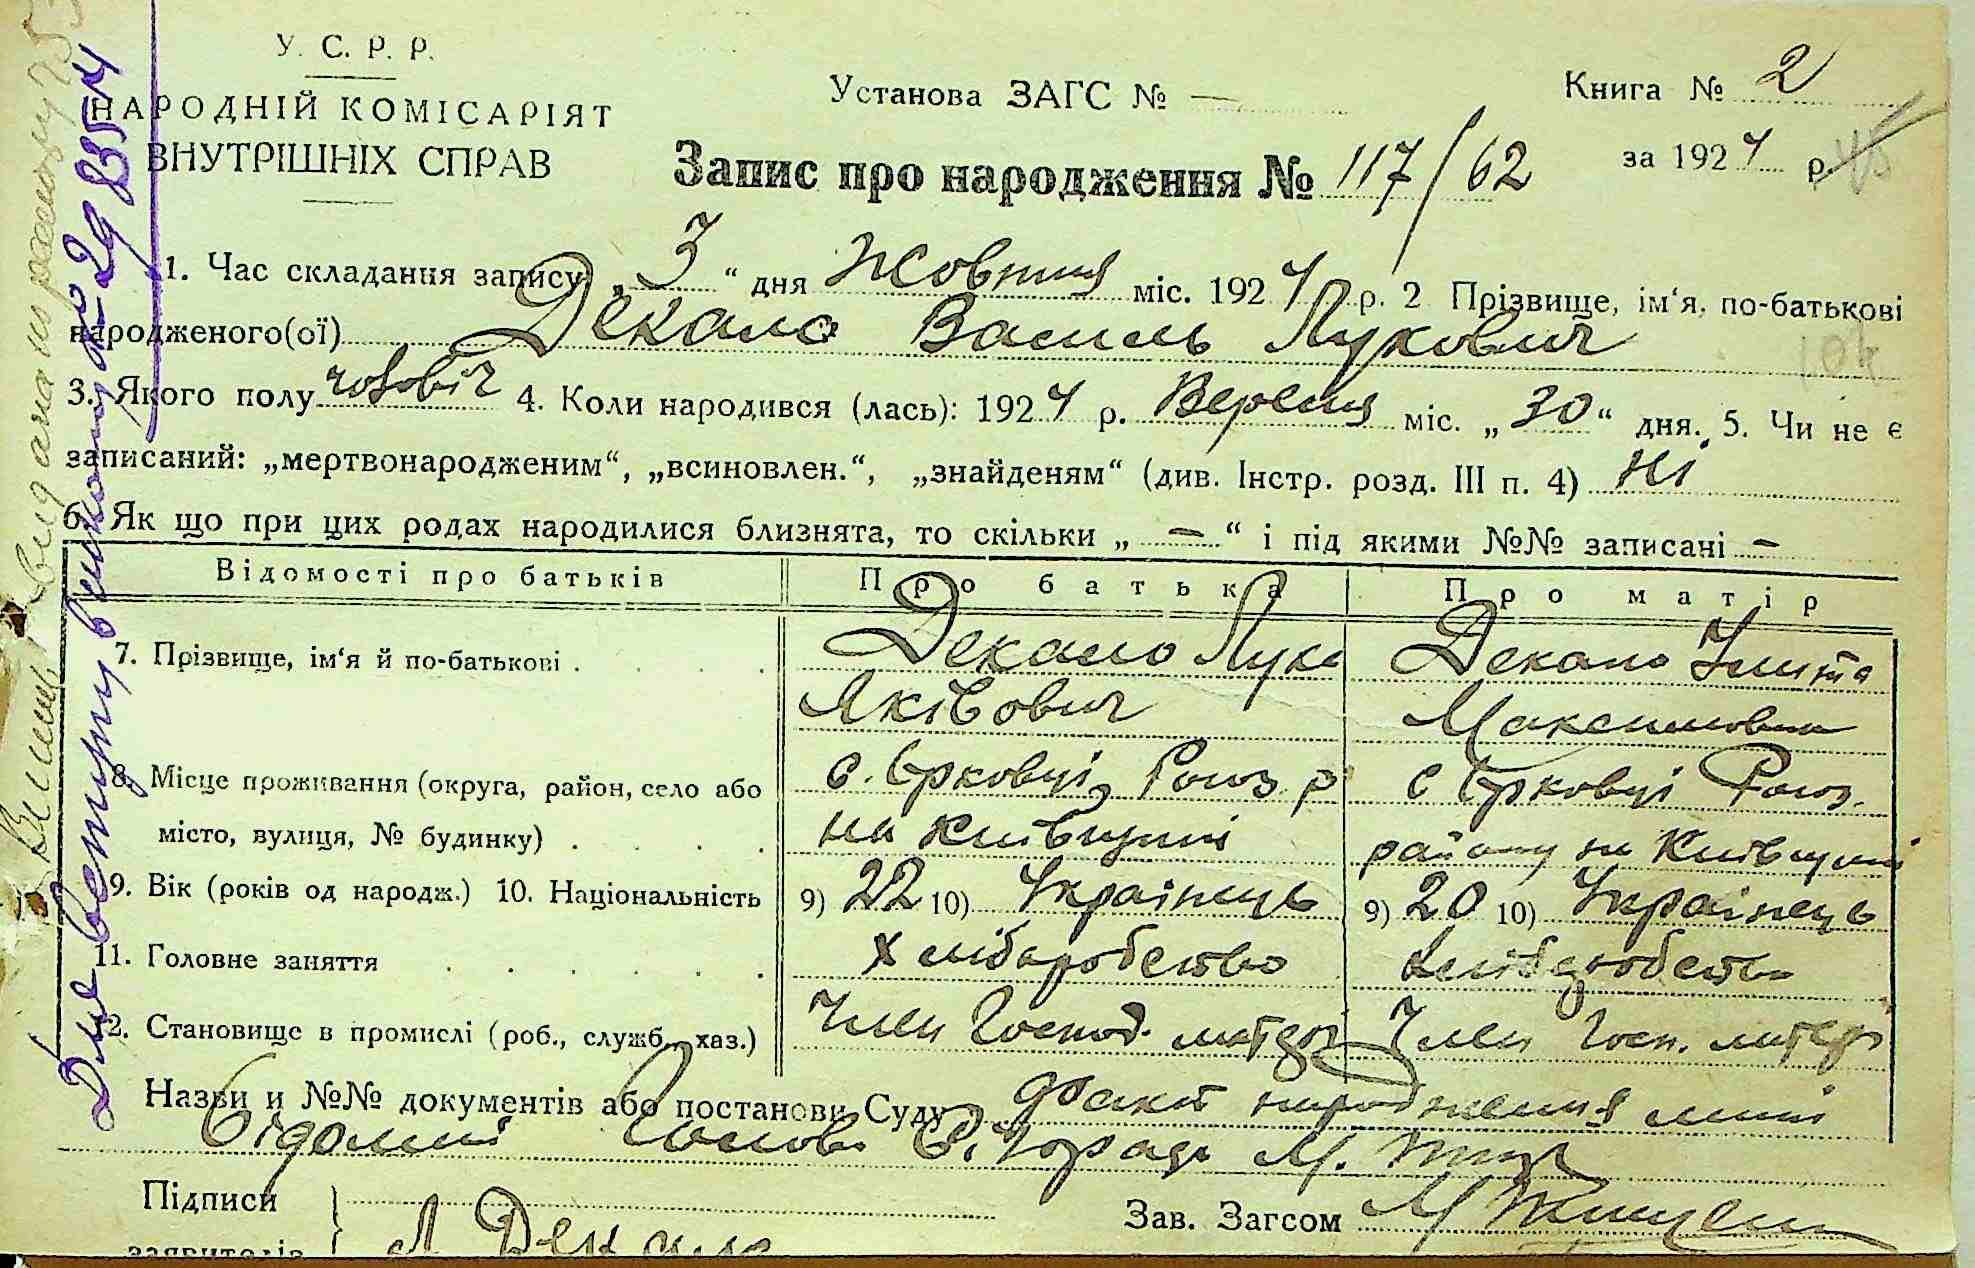 У. С. Р. Р.
НАРОДНІЙ КОМІСАРІЯТ
ВНУТРІШНІХ СПРАВ
Установа ЗАГС № —
Книга № 2
за 1924 р.
Запис про народження № 117/62
1. Час складання запису „3“ дня Жовтня міс. 1924 р. 2 Прізвище, ім‘я, по-батькові
народженого(ої) Декало Василь Лукович
3. Якого полу чоловіч 4. Коли народився (лась): 1924 р. Вересня міс. „30“ дня. 5. Чи не є
записаний: „мертвонародженим“, „всиновлен.“, „знайденям“ (див. Інстр. розд. III п. 4) Ні
6. Як що при цих родах народилися близнята, то скільки „—“ і під якими №№ записані —
Відомості про батьків Про батька Про матір
7. Прізвище, ім‘я й по-батькові . Декало Лука Декало
Яківович Максимовна
8. Місце проживання (округа, район, село або с. Єрковці р с Єрковці
місто, вулиця, № будинку) . на Київщині району на Київщині
9. Вік (років од народж.) 10. Національність 9) 22 10) Українець 9) 20 10) Українець
11. Головне заняття хліборобство хліборобство
12. Становище в промислі (роб., служб., хаз.) Член Господ. Член Госп.
Назви и №№ документів або постанови Суду факт народження мині
відомий Голова М.
Підписи
заявителів Л Декало
Зав. Загсом М